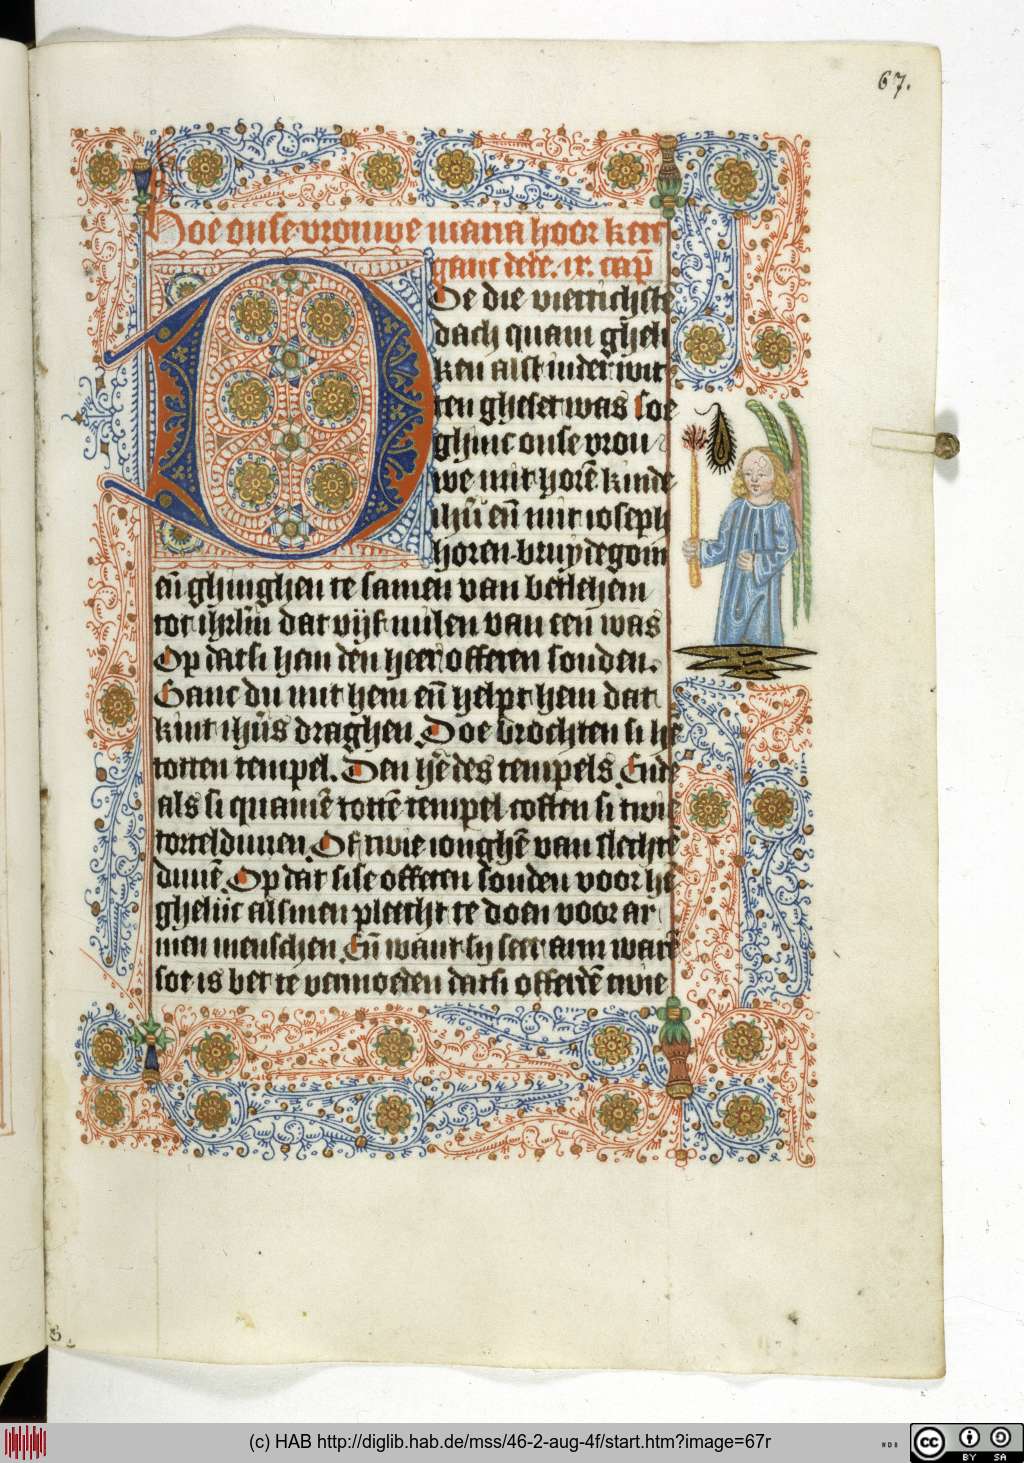 67.
Hoe onse vrouwe maria hoor kerc
ganc dede. ix. cap
Doe die viertichste
dach quam ghelÿ
ken alst inder wit
ten gheset was Soe
ghinc onse vrou
we mit horē kinde
ihū eñ mit ioseph
horen bruydegom
eñ ghinghen te samen van betlehem
tot ihrlm̄ dat vijf milen van een was
Op datsi hem den heer offeren souden.
Ganc du mit hem eñ helpt hem dat
kint ihūs draghen. Doe brochten si hē
totten tempel. Den hēe des tempels Ende
als si quamē tottē tempel coften si twie
tortelduuen. Of twie ionghē van slechtē
duuē. Op dat si se offeren souden voor hē
ghelijc alsmen pleecht te doen voor ar
men menschen. Eñ want sy seer arm warē
sot is bet te vermoeden datsi offerdē twie
(c) HAB http://diglib.hab.de/mss/46-2-aug-4f/start.htm?image=67r
WDB
cc BY SA